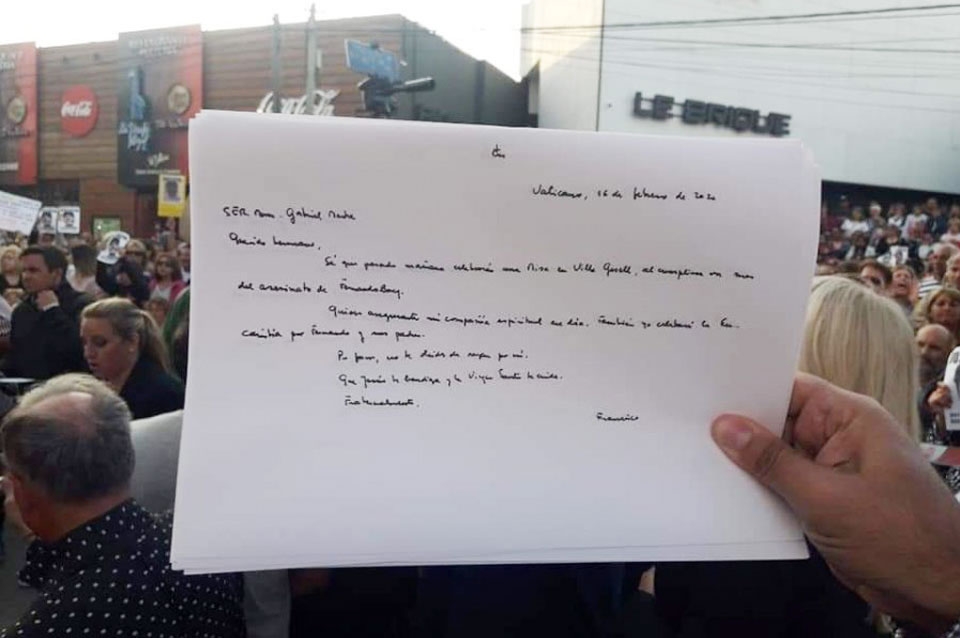 Coca-Cola
Coca-Cola
LE BRIQUE
Vaticano, 16 de febrero de 2020
S.E.R. Mons. Gabriel Mestre
Querido hermano,
Sé que pasado mañana celebrarás una Misa en Villa Gesell, al cumplirse un mes
del asesinato de Fernando Baez.
Quiero asegurarte mi compañía espiritual ese día. También yo celebraré la Eu-
caristía por Fernando y sus padres.
Por favor, no te olvides de rezar por mí.
Que Jesús te bendiga y la Virgen Santa te cuide.
Fraternalmente,
Francisco